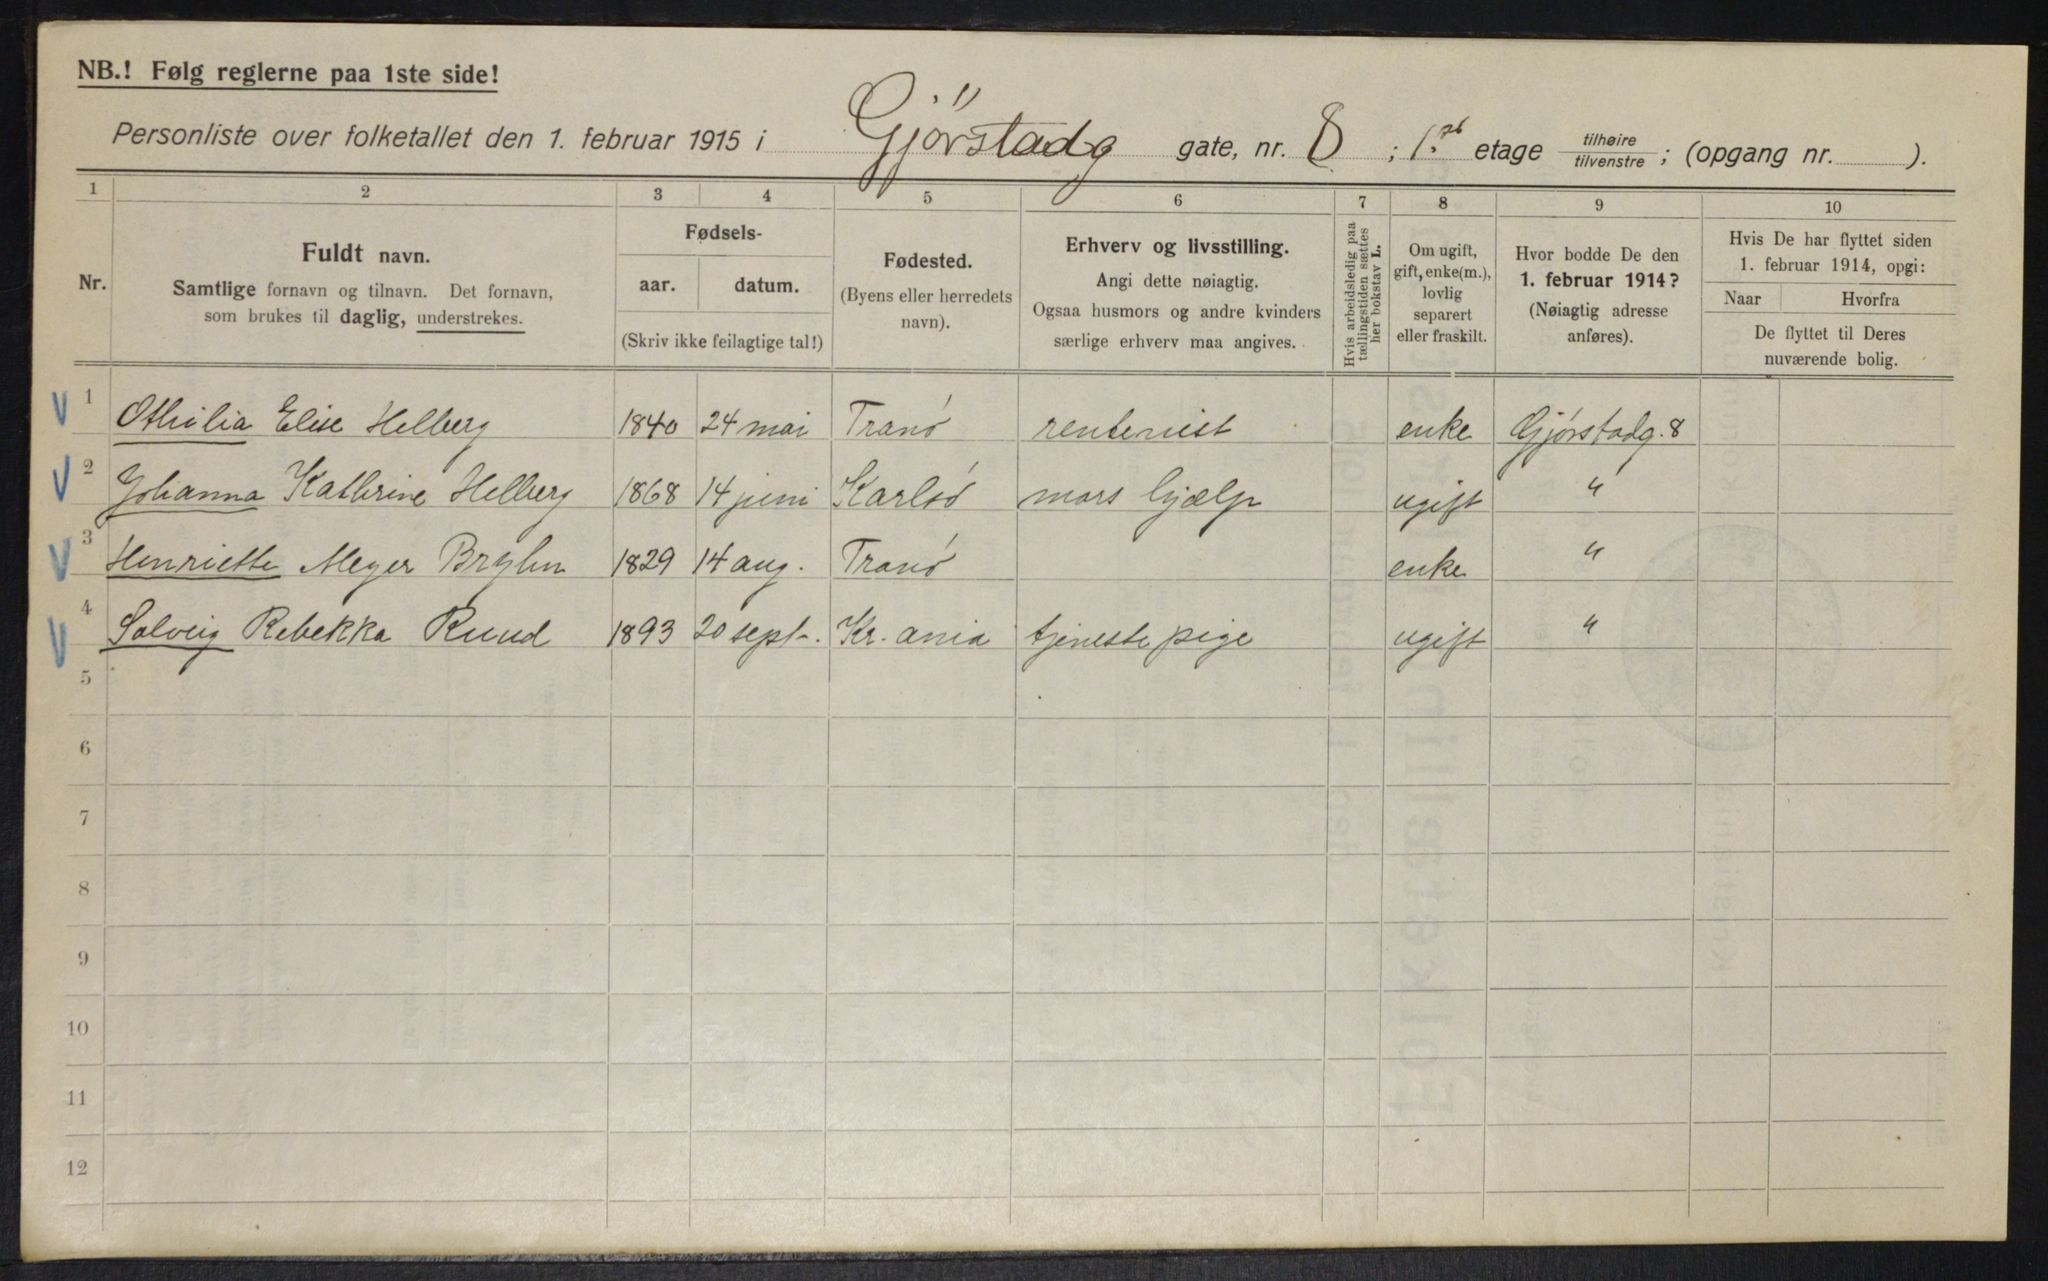 NB.! Følg reglerne paa 1ste side!
Personliste over folketallet den 1. februar 1915 i Gjørstadg gate, nr. 8 ; 1. etage tilhøire tilvenstre ; (opgang nr. ).
1 2 3 4 5 6 7 8 9 10
Nr.
Fuldt navn.
Samtlige fornavn og tilnavn. Det fornavn,
som brukes til daglig, understrekes.
Fødsels-
aar. datum.
(Skriv ikke feilagtige tal!)
Fødested.
(Byens eller herredets
navn).
Erhverv og livsstilling.
Angi dette nøiagtig.
Ogsaa husmors og andre kvinders
særlige erhverv maa angives.
Hvis arbeidsledig paa
tællingstiden sættes
her bokstav L.
Om ugift,
gift, enke(m.),
lovlig
separert
eller fraskilt.
Hvor bodde De den
1. februar 1914?
(Nøiagtig adresse
anføres).
Hvis De har flyttet siden
1. februar 1914, opgi:
Naar Hvorfra
De flyttet til Deres
nuværende bolig.
1 Othilia Elise Helberg 1840 24 mai Tranö rentenist enke Gjørstadg. 8
2 Johanna Kathrine Helberg 1868 14 juni Karlsö mors hjælp ugift "
3 Henriette Meyer 1829 14 aug. Tranö enke "
4 Solveig Rebekka Ruud 1893 20 sept. Kr. ania tjenestepige ugift "
5
6
7
8
9
10
11
12